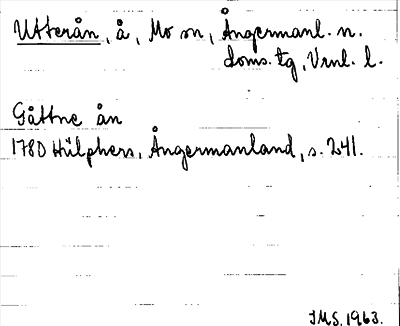 Utterån, å, Mo sn, Ångermanl. n.
doms. tg, Vrnl. l.
Gåttne ån
1780 Hülphers, Ångermanland, s. 241.
JMS. 1963.